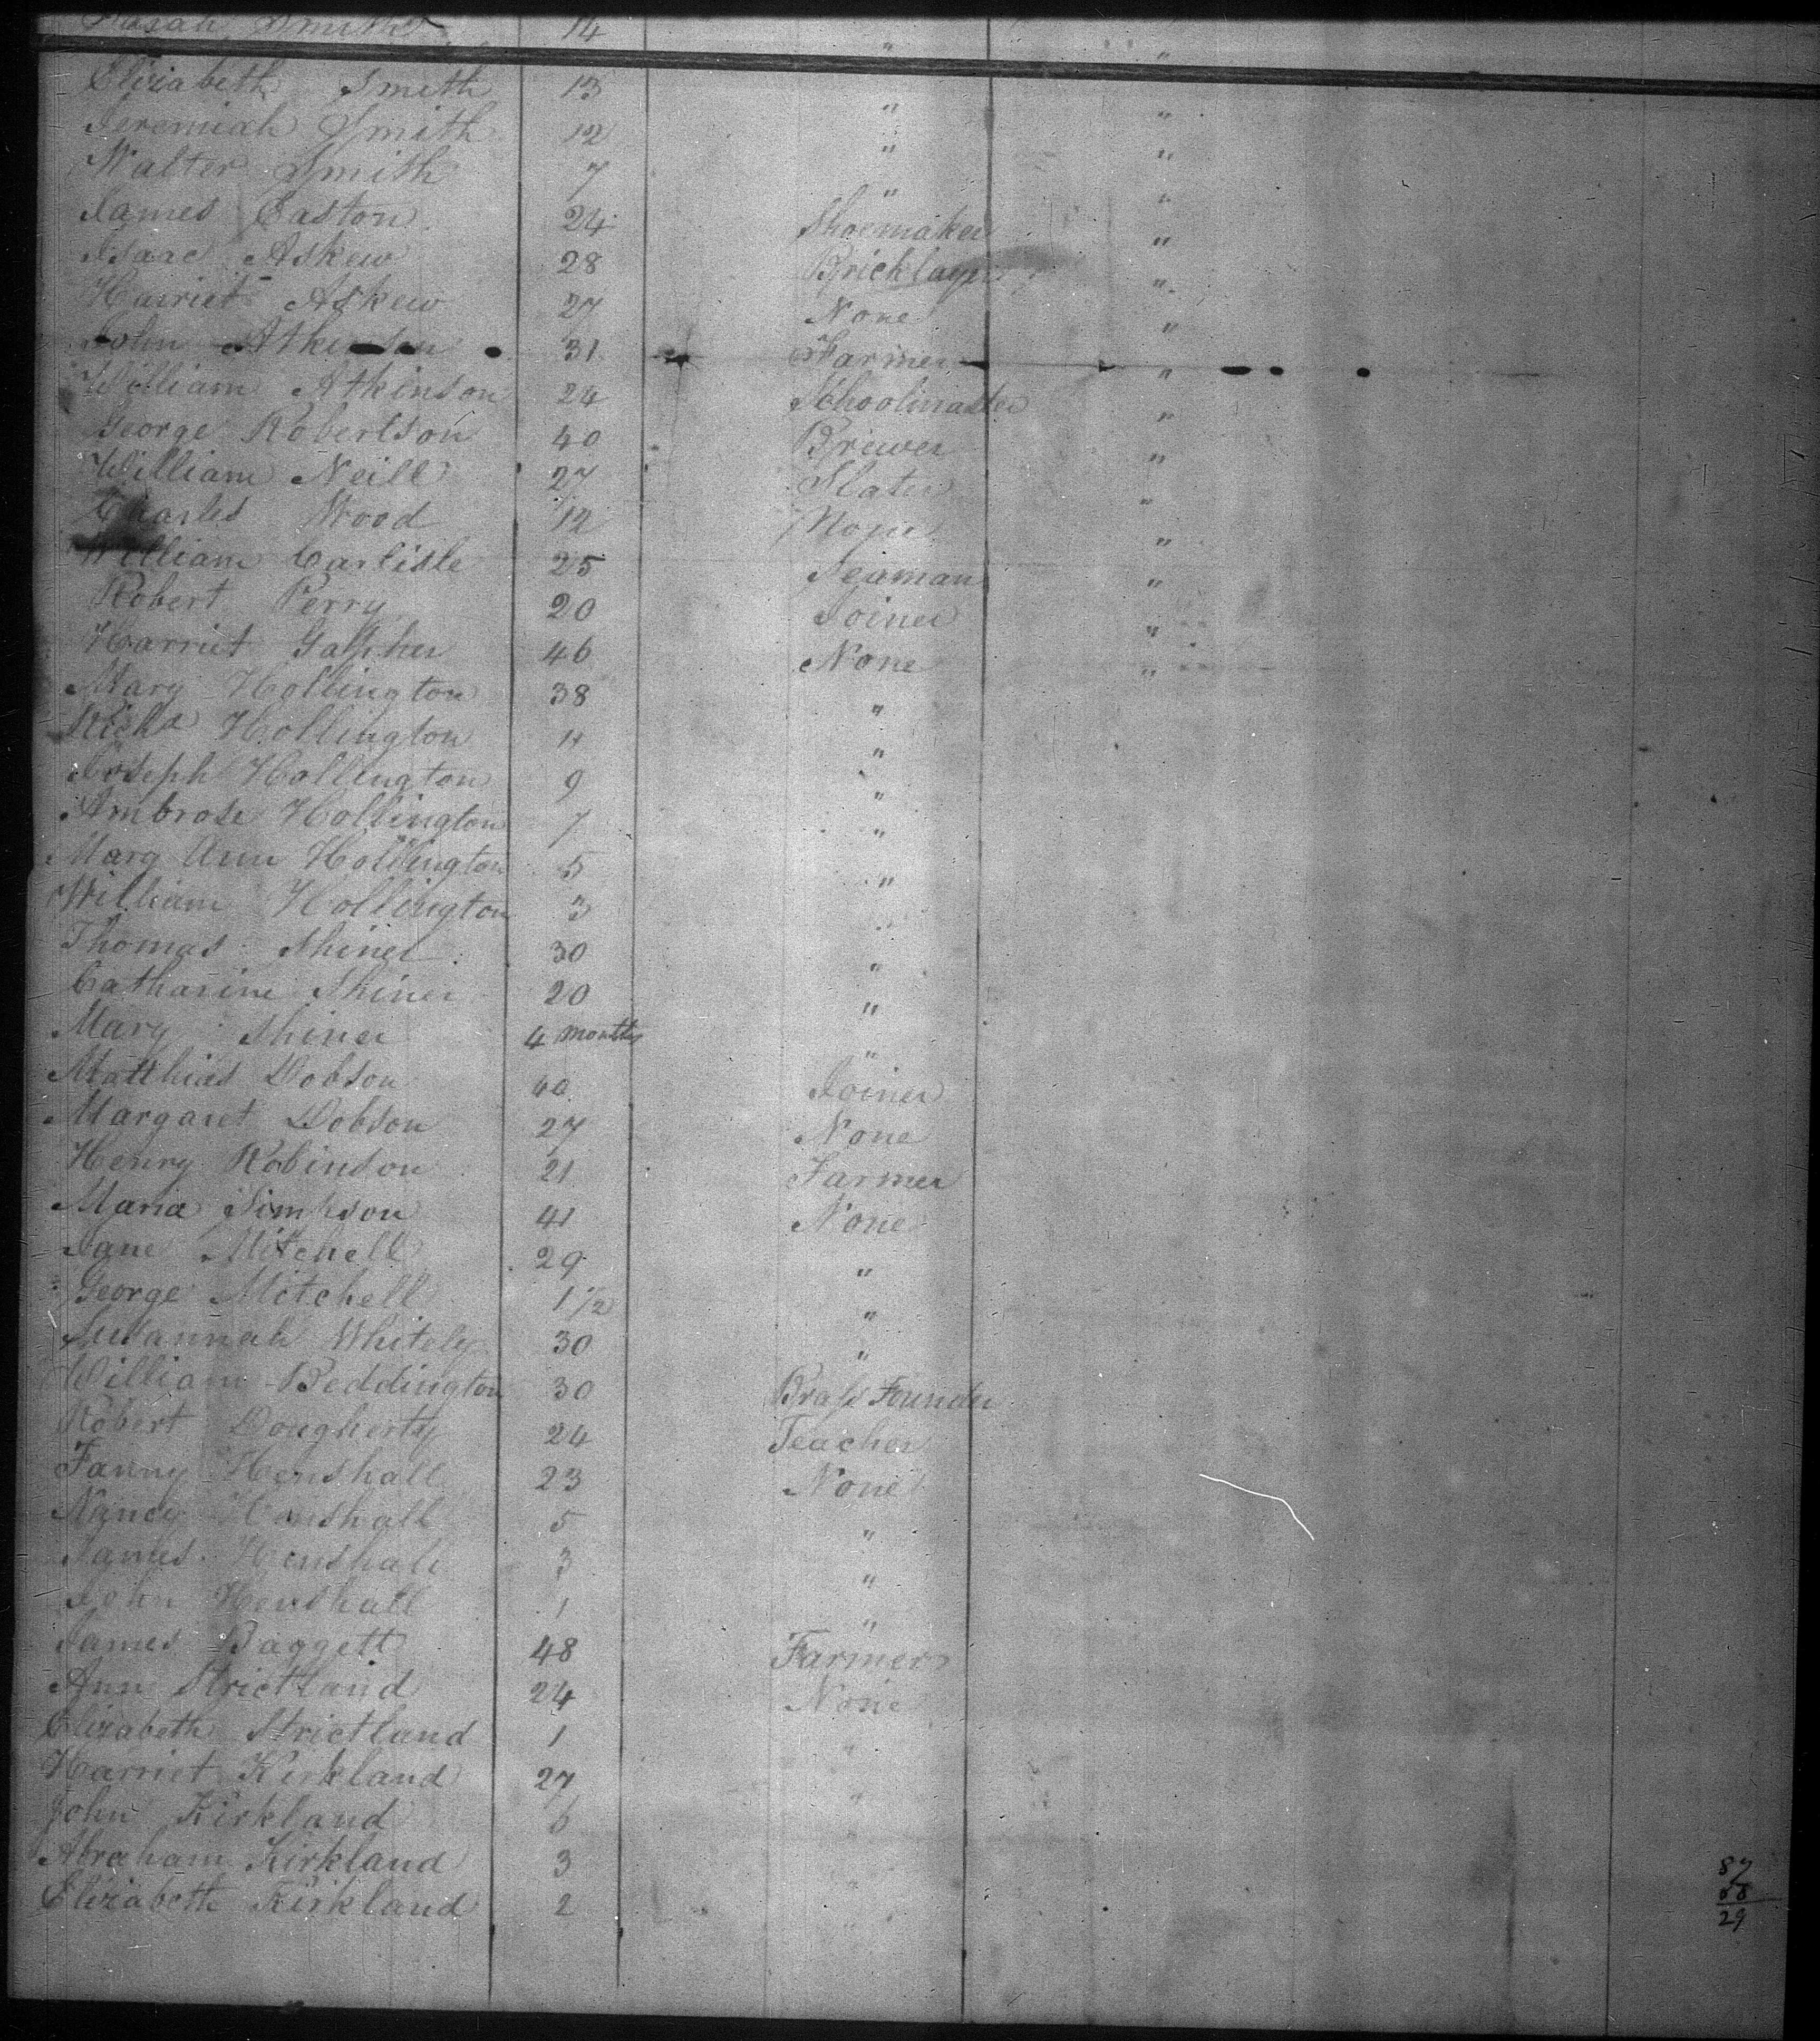 Smith 14 "
Elizabeth Smith 13 " "
Jeremiah Smith 12 " "
Walter Smith 7 " "
James Easton 24 Shoemaker "
Isaac Askew 28 Bricklayer "
Harriet Askew 27 None "
John Atkinson 31 Farmer "
William Atkinson 24 Schoolmaster "
George Robertson 40 Brewer "
William Neill 27 Slater "
Charles Wood 12 None "
William Carlisle 25 Seaman "
Robert Perry 20 Joiner "
Harriet 46 None "
Mary Hollington 38 "
Richd Hollington 11 "
Joseph Hollington 9 "
Ambrose Hollington 7 "
Mary Ann Hollington 5 "
William Hollington 3 "
Thomas Shiner 30 "
Catharine Shiner 20 "
Mary Shiner 4 months "
Matthias Dobson 40 Joiner
Margaret Dobson 27 None
Henry Robinson 21 Farmer
Maria Simpson 41 None
Jane Mitchell 29 "
George Mitchell 1 1/2 "
Susannah Whitely 30 "
William Beddington 30 Brass Founder
Robert Dougherty 24 Teacher
Fanny Henshall 23 None
Nancy Henshall 5 "
James Henshall 3 "
John Henshall 1 "
James Baggett 48 Farmer
Ann Strictland 24 None
Elizabeth Strictland 1 "
Harriet Kirkland 27 "
John Kirkland 6 "
Abraham Kirkland 3 "
Elizabeth Kirkland 2 "
87
29